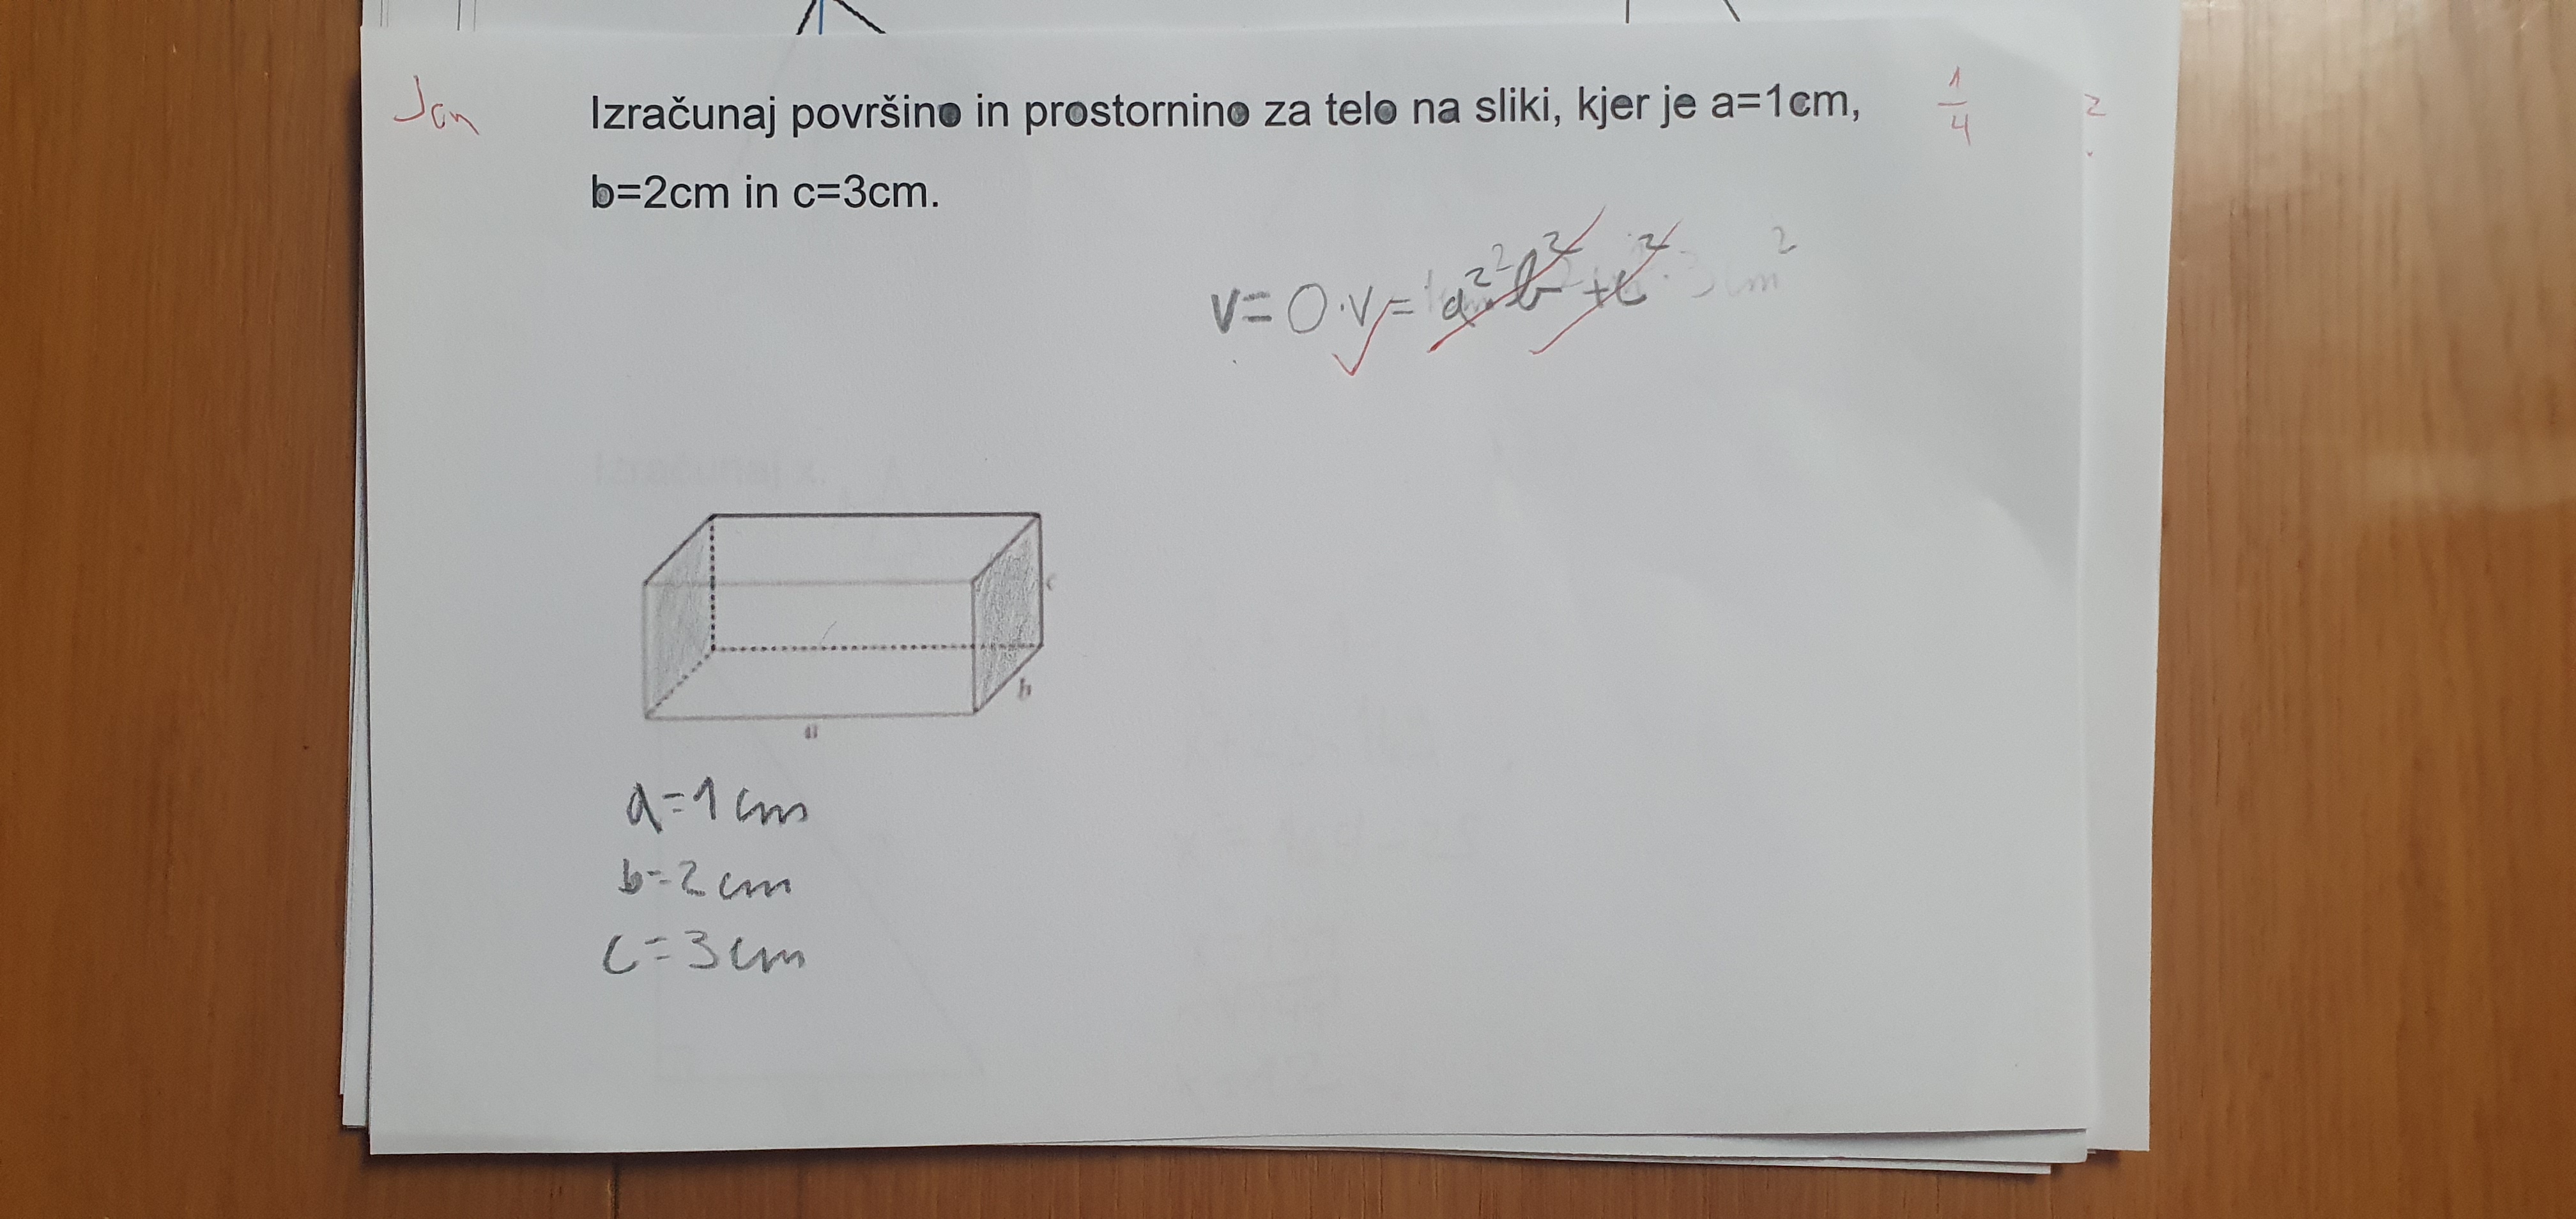 Jan
Izračunaj površino in prostornino za telo na sliki, kjer je a=1cm,
b=2cm in c=3cm.
1
4
2
V=O·V=
a
b
c
a=1cm
b=2cm
c=3cm